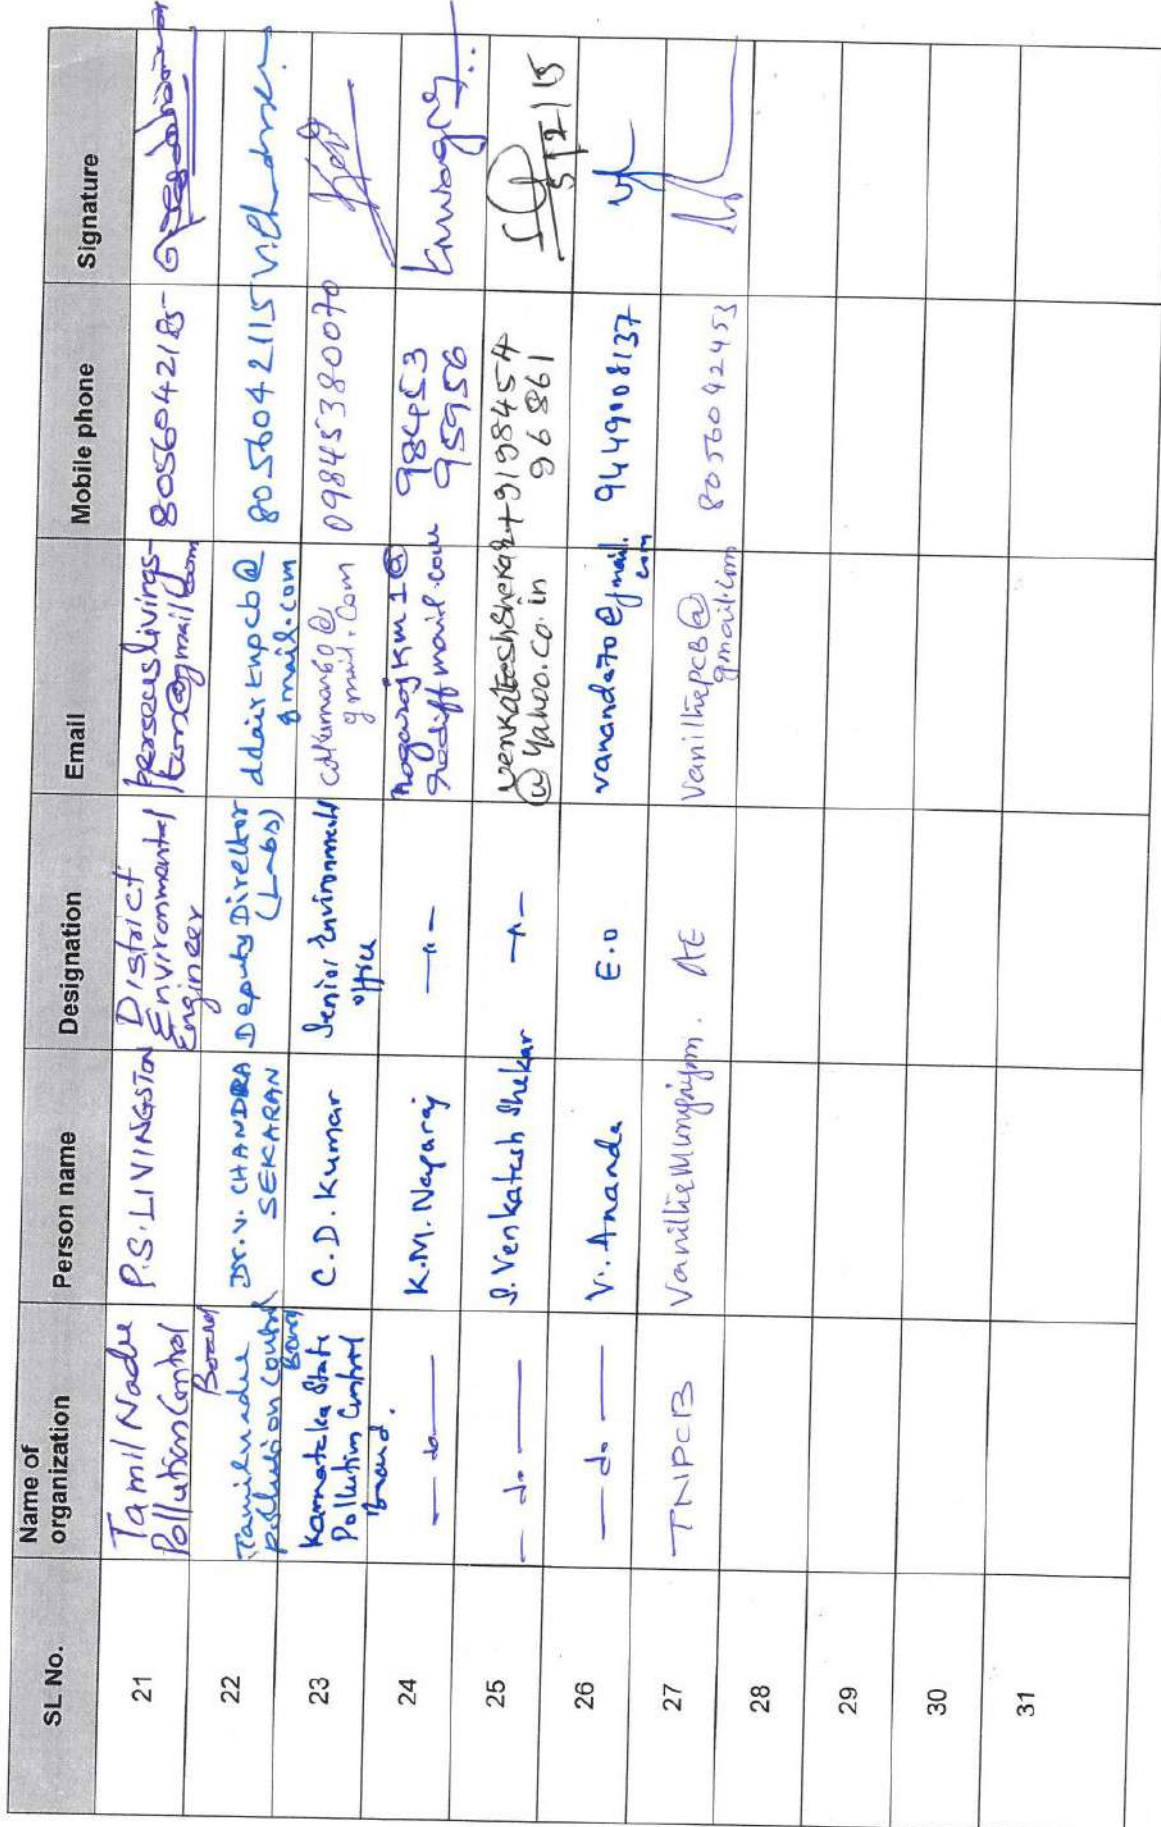 SL No. Name of organization Person name Designation Email Mobile phone Signature
21 Tamil Nadu Pollution Control Board P.S. LIVINGSTON District Environmental Engineer 8056042185
22 Tamilnadu Pollution Control Board Dr. V. CHANDRA SEKARAN Deputy Director (Labs) ddairtnpcb@gmail.com 8056042115
23 Karnataka State Pollution Control Board. C.D. Kumar Senior Environmental office cdkumar60@gmail.com 09845380070
24 — do — K.M. Nagaraj — " — nagarajkm1@rediffmail.com 98453 95956
25 — do — S. Venkatesh Shekar — " — venkateshshekar@yahoo.co.in +91 98454 96861 5/2/15
26 — do — V. Ananda E.O vananda70@gmail.com 9449108137
27 TNPCB AE VanilhepcB@gmail.com 8056042453
28
29
30
31